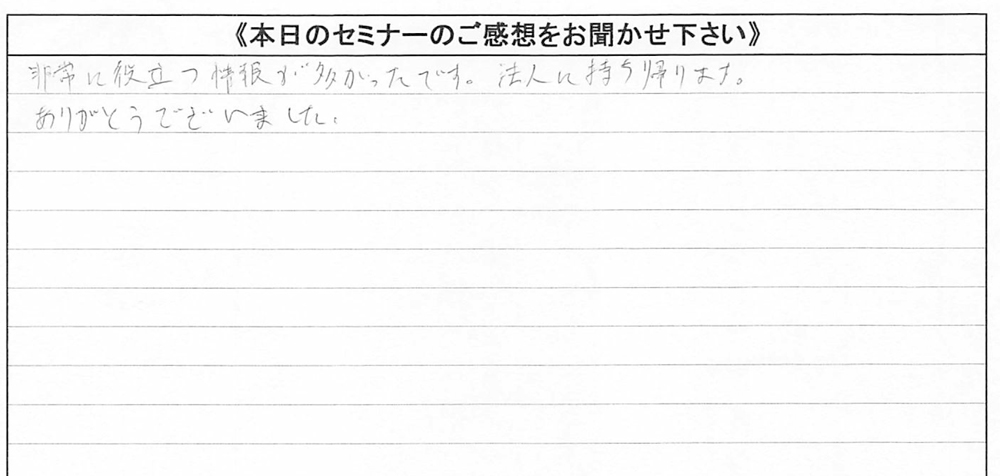 《本日のセミナーのご感想をお聞かせ下さい》
非常に役立つ情報が多かったです。法人に持ち帰ります。
ありがとうございました。